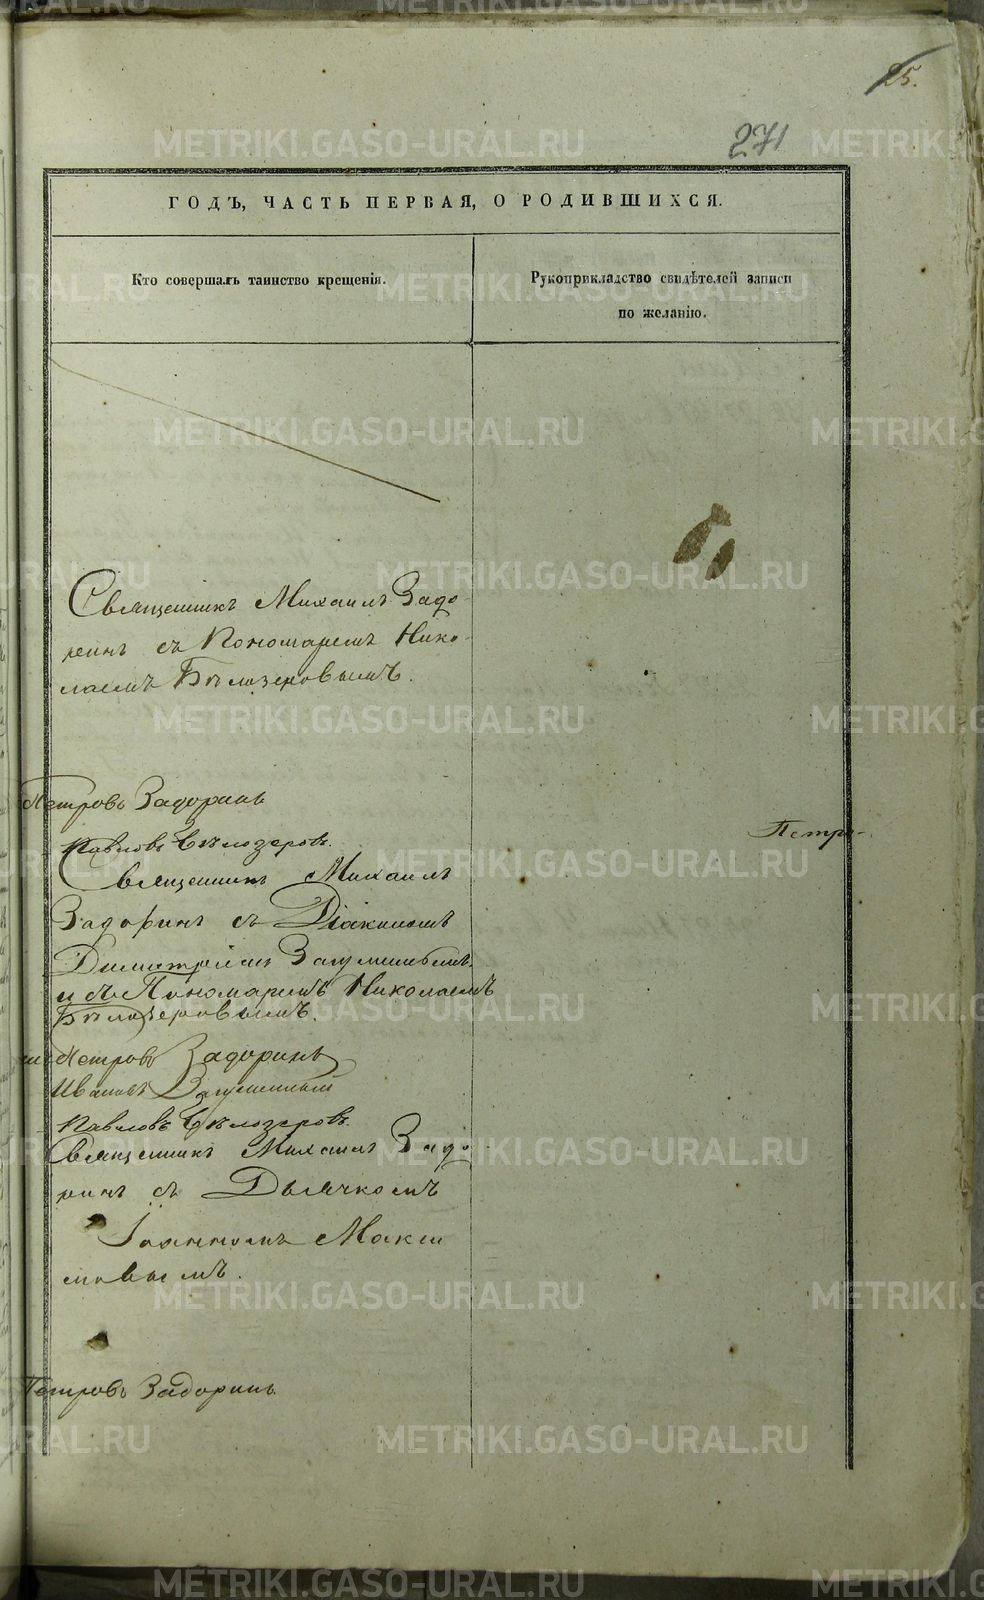 25.
271
ГОДЪ, ЧАСТЬ ПЕРВАЯ, О РОДИВШИХСЯ.
Кто совершалъ таинство крещенія.
Рукоприкладство свидѣтелей записи
по желанію.
Священникъ Михаилъ Задо-
ринъ съ Пономаремъ Нико-
лаемъ Бѣлозеровымъ.
Петровъ Задоринъ
Павловъ Бѣлозеровъ.
Петро-
Священникъ Михаилъ
Задоринъ съ Діакономъ
Димитріемъ
и съ Пономаремъ Николаемъ
Бѣлозеровымъ.
Петровъ Задоринъ
Ивановъ
Павловъ Бѣлозеровъ.
Священникъ Михаилъ Задо
ринъ съ Дьячкомъ
Іоанномъ Макси
мовымъ.
Петровъ Задоринъ
METRIKI.GASO-URAL.RU